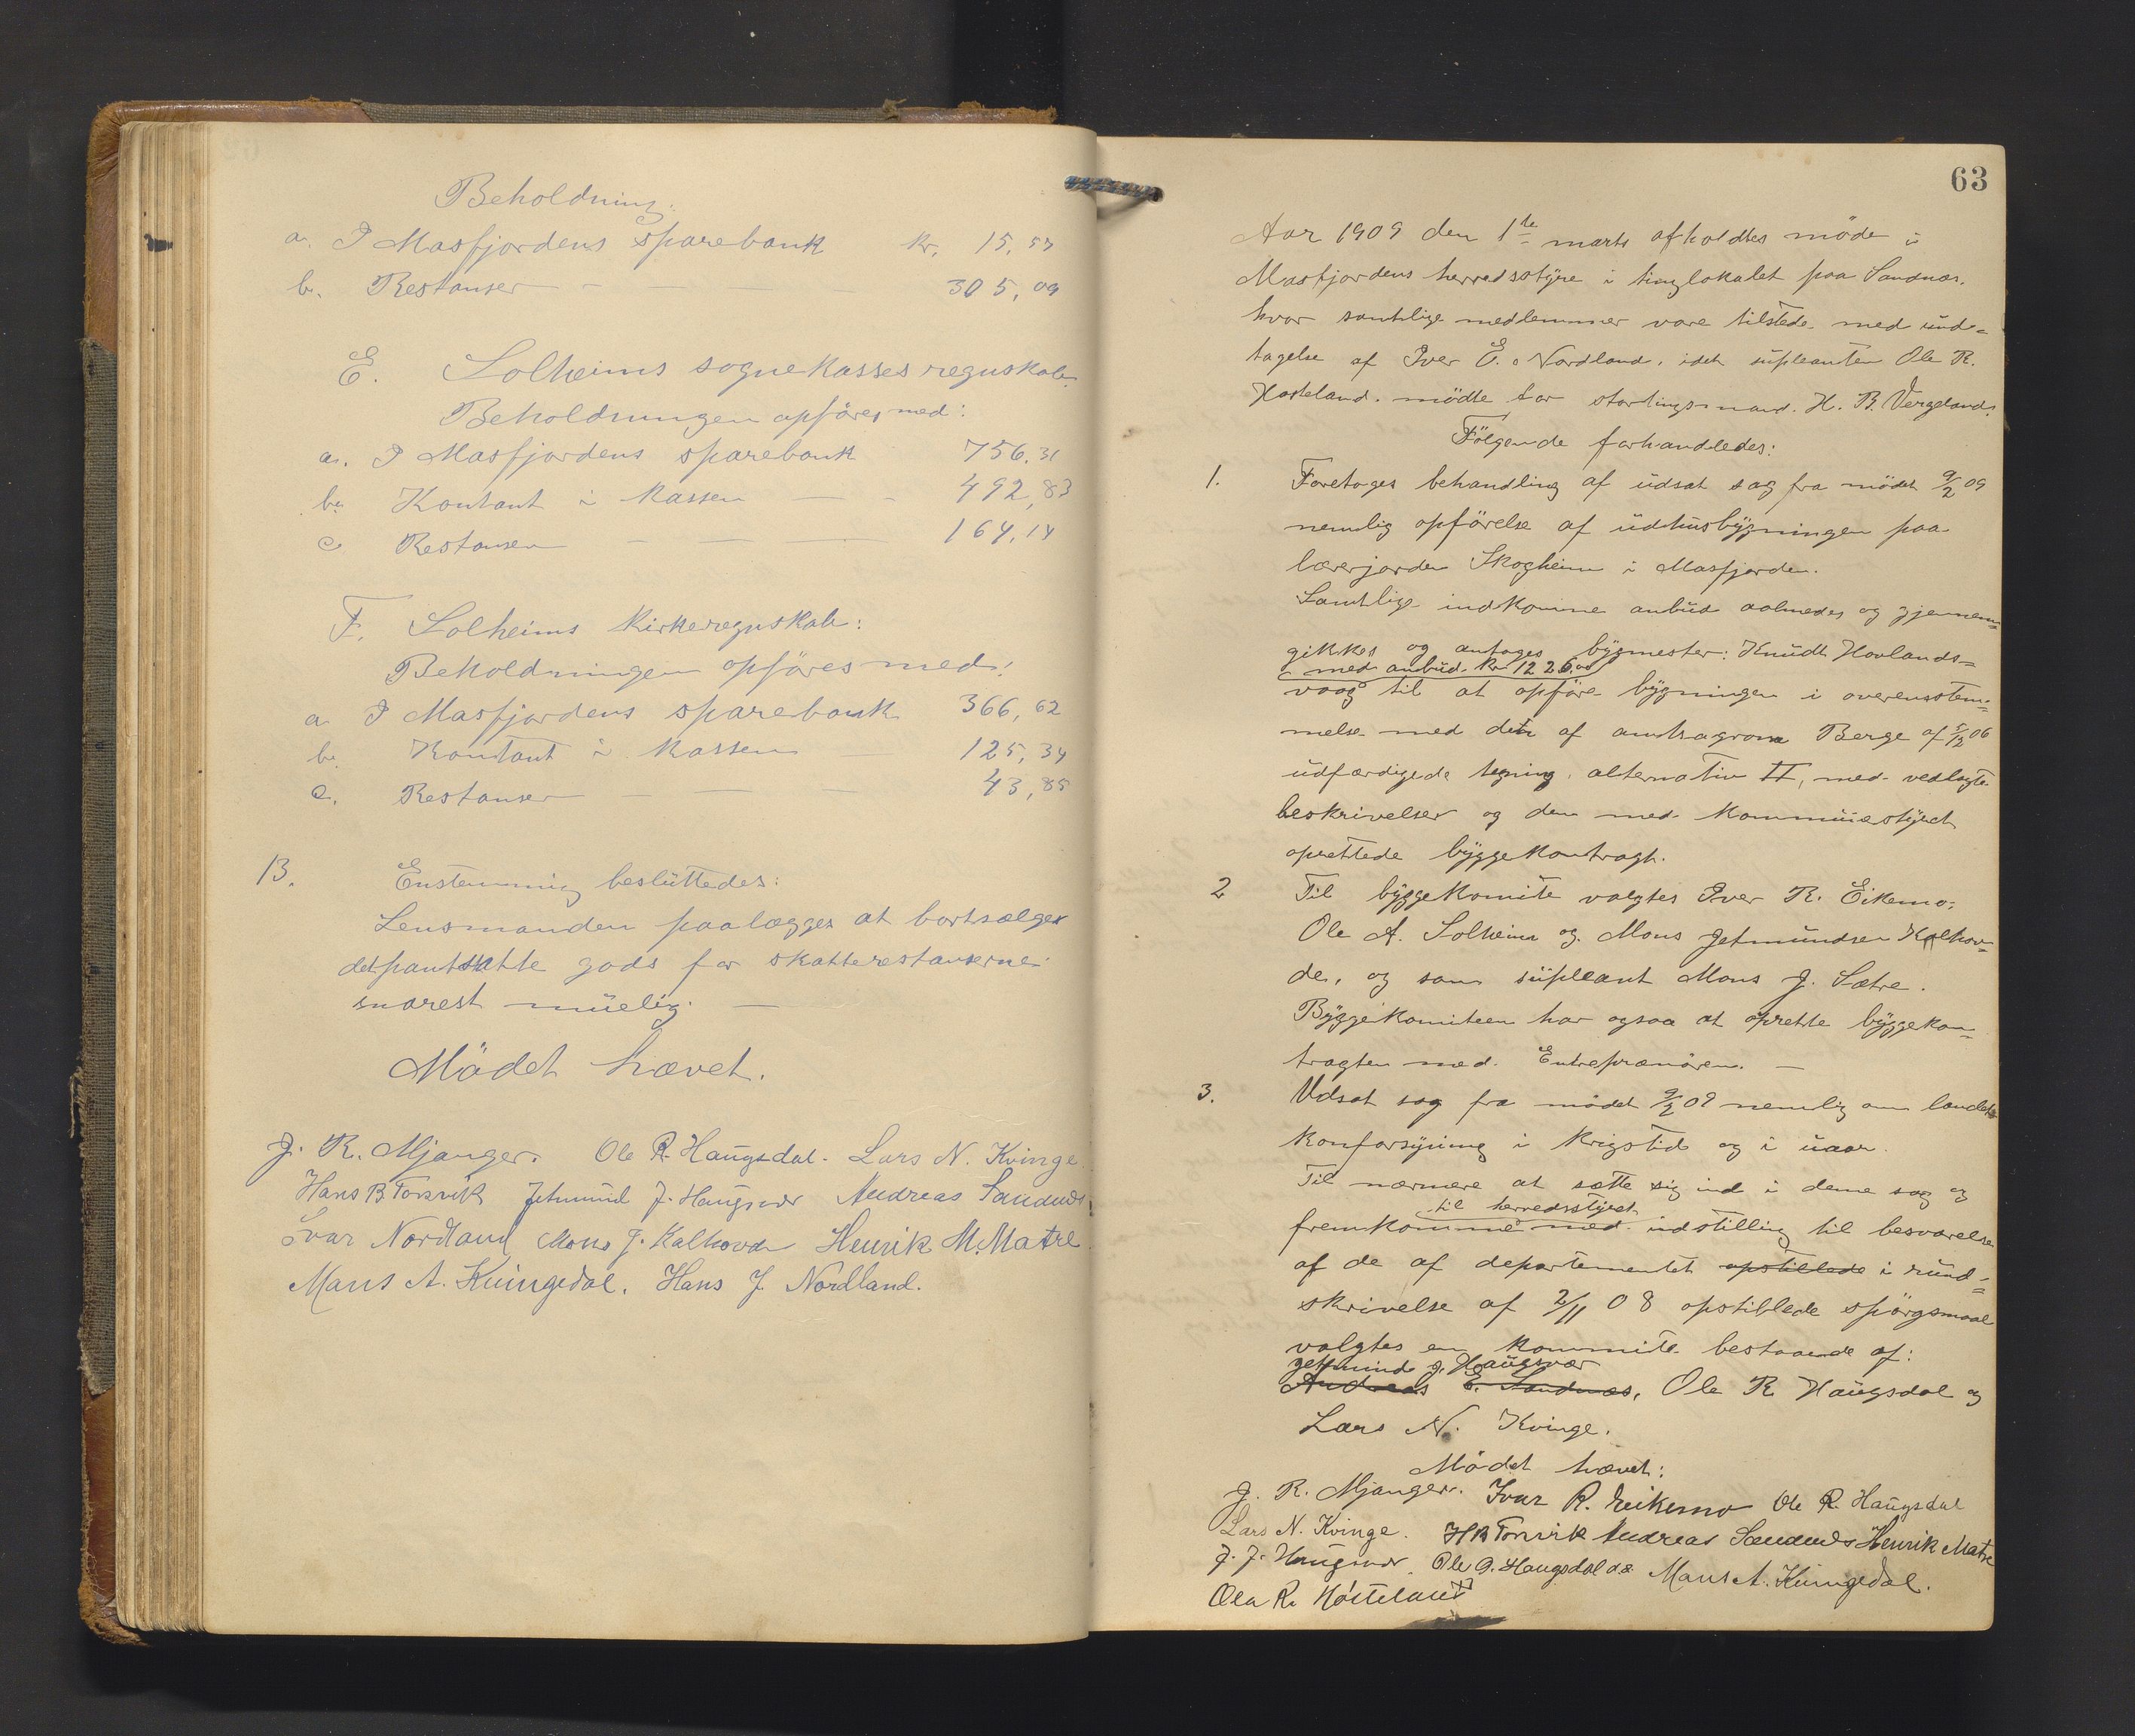 Beholdning:
a. I Masfjordens sparebank kr. 15,57
b. Restanser - - - 305,09
E. Solheims sognekasses regnskab.
Beholdningen opføres med:
a. I Masfjordens sparebank 756,31
b. Kontant i kassen - - 492,83
c. Restanser - - - 164,14
F. Solheims kirkeregnskab:
Beholdningen opføres med:
a I Masfjordens sparebank 366,62
b. Kontant i kassen 125,34
c. Restanser - - - 43,85
13. Enstemmig beslüttedes:
Lensmanden paalægges at bortsælge
det pantsatte gods for skatterestanserne
snarest müelig. -
Mödet hævet.
J. R. Mjanger. Ole R. Haugsdal. Lars N. Kvinge.
Hans B Torsvik Jetmund J. Haugsvær Andreas Sandnæs
Ivar Nordland Mons J. Kalhovde Henrik M. Matre
Mans A. Kvingedal. Hans J. Nordland.
63
Aar 1909 den 1ste marts afholdtes möde i
Masfjordens herredsstyre i tinglokalet paa Sandnæs.
hvor samtlige medlemmer vare tilstede med und=
tagelse af Iver E. Nordland, idet supleanten Ole R.
Hosteland mödte for stortingsmand H. B. Vergeland.
Fölgende forhandledes:
1. Foretoges behandling af udsat sag fra mödet 9/2 09
nemlig opförelse af udhusbygningen paa
lærerjorden Skogheim i Masfjorden.
Samtlige indkomne anbud oplæstes og gjennem=
gikkes og antoges bygmester: Knudt Hovlands=
med anbud kr 1226,00
vaag til at opföre bygningen i overensstem=
melse med den af amtsagronom Berge af 5/12 06
udfærdigede tegning, alternativ II, med vedlagte
beskrivelser og den med kommunestyret
oprettede byggekontragt.
2 Til byggekomite valgtes Iver R. Eikemo,
Ole A. Solheim og Mons Jetmundsen Kalhov=
de, og som supleant Mons J. Sætre.
Byggekomiteen har ogsaa at oprette byggekon=
tragten med Entreprenören. -
3. Udsat sag fra mödet 9/2 09 nemlig om landets
kornforsyning i krigstid og i uaar.
Til nærmere at sætte sig ind i denne sag og
til herredsstyret
fremkomme med indstilling til besvarelse
af de af departementet opstillede i rund=
skrivelse af 2/11 08 opstillede spörgsmaal
valgtes en kommite bestaaende af:
Jetmund J. Haugsvær
Andreas E. Sandnæs, Ole R. Haugsdal og
Lars N. Kvinge.
Mödet hævet:
J. R. Mjanger. Ivar R. Eeikemo Ole R. Haugsdal
Lars N. Kvinge. H B Torsvik Andreas Sandnæs Henrik Matre
J. J. Haugsvær Ole O. Haugsdal Mans A. Kvingedal.
Ola R. Hosteland